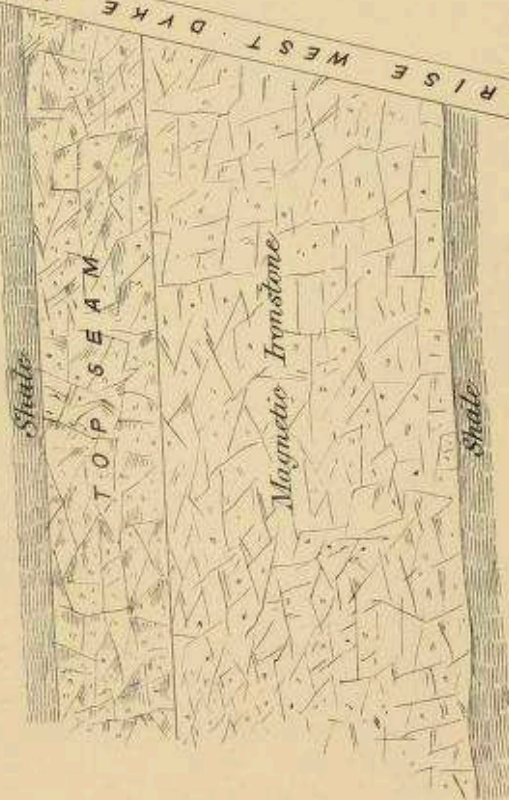 RISE WEST DYKE
Shale
TOP SEAM
Magnetic Ironstone
Shale